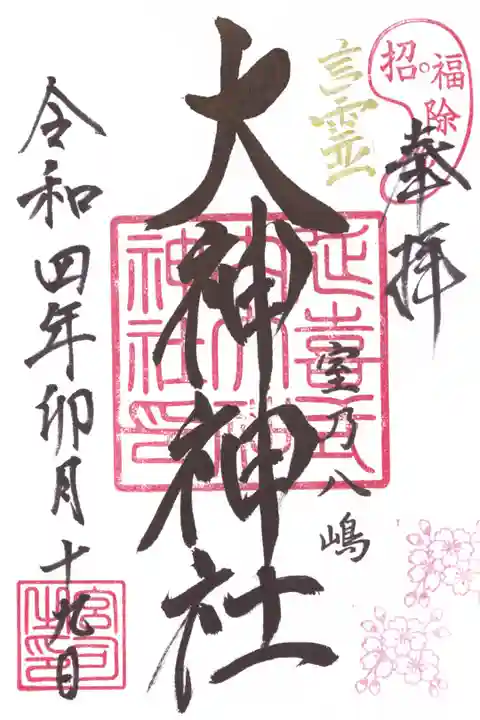 招福除
奉拝
言霊
延喜式内大神神社印
室乃八嶋
大神神社
令和四年卯月十九日
宮司之印